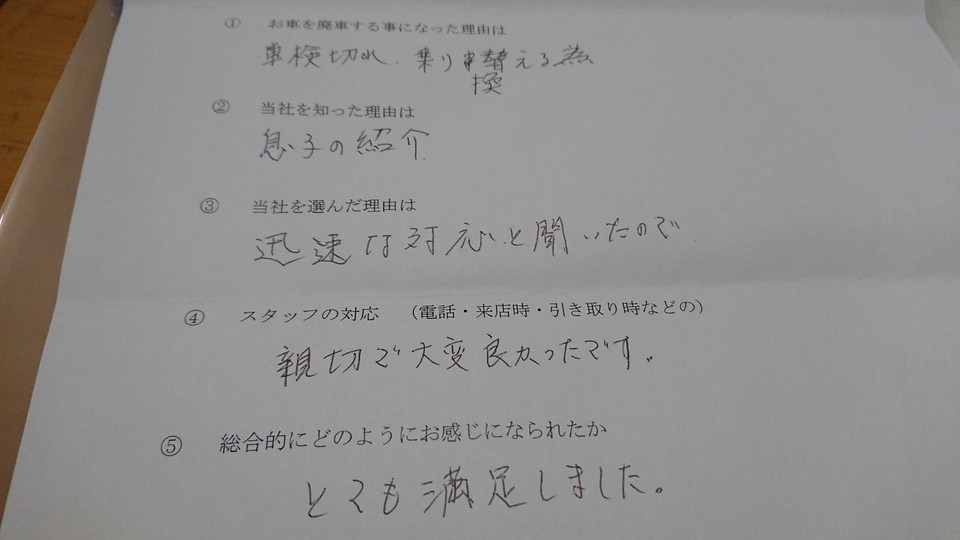 ① お車を廃車する事になった理由は
車検切れ、乗り替える為
換
② 当社を知った理由は
息子の紹介
③ 当社を選んだ理由は
迅速な対応と聞いたので
④ スタッフの対応 （電話・来店時・引き取り時などの）
親切で大変良かったです。
⑤ 総合的にどのようにお感じになられたか
とても満足しました。